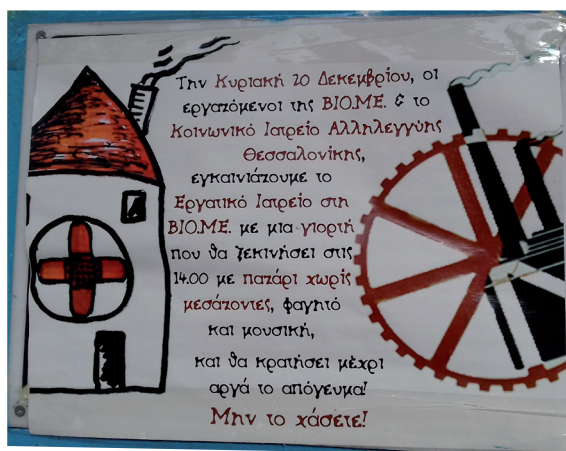 Την Κυριακή 20 Δεκεμβρίου, οι
εργαζόμενοι της ΒΙΟ.ΜΕ. & το
Κοινωνικό Ιατρείο Αλληλεγγύης
Θεσσαλονίκης,
εγκαινιάζουμε το
Εργατικό Ιατρείο στη
ΒΙΟ.ΜΕ. με μια γιορτή
που θα ξεκινήσει στις
14.00 με παζάρι χωρίς
μεσάζοντες, φαγητό
και μουσική,
και θα κρατήσει μέχρι
αργά το απόγευμα!
Μην το χάσετε!